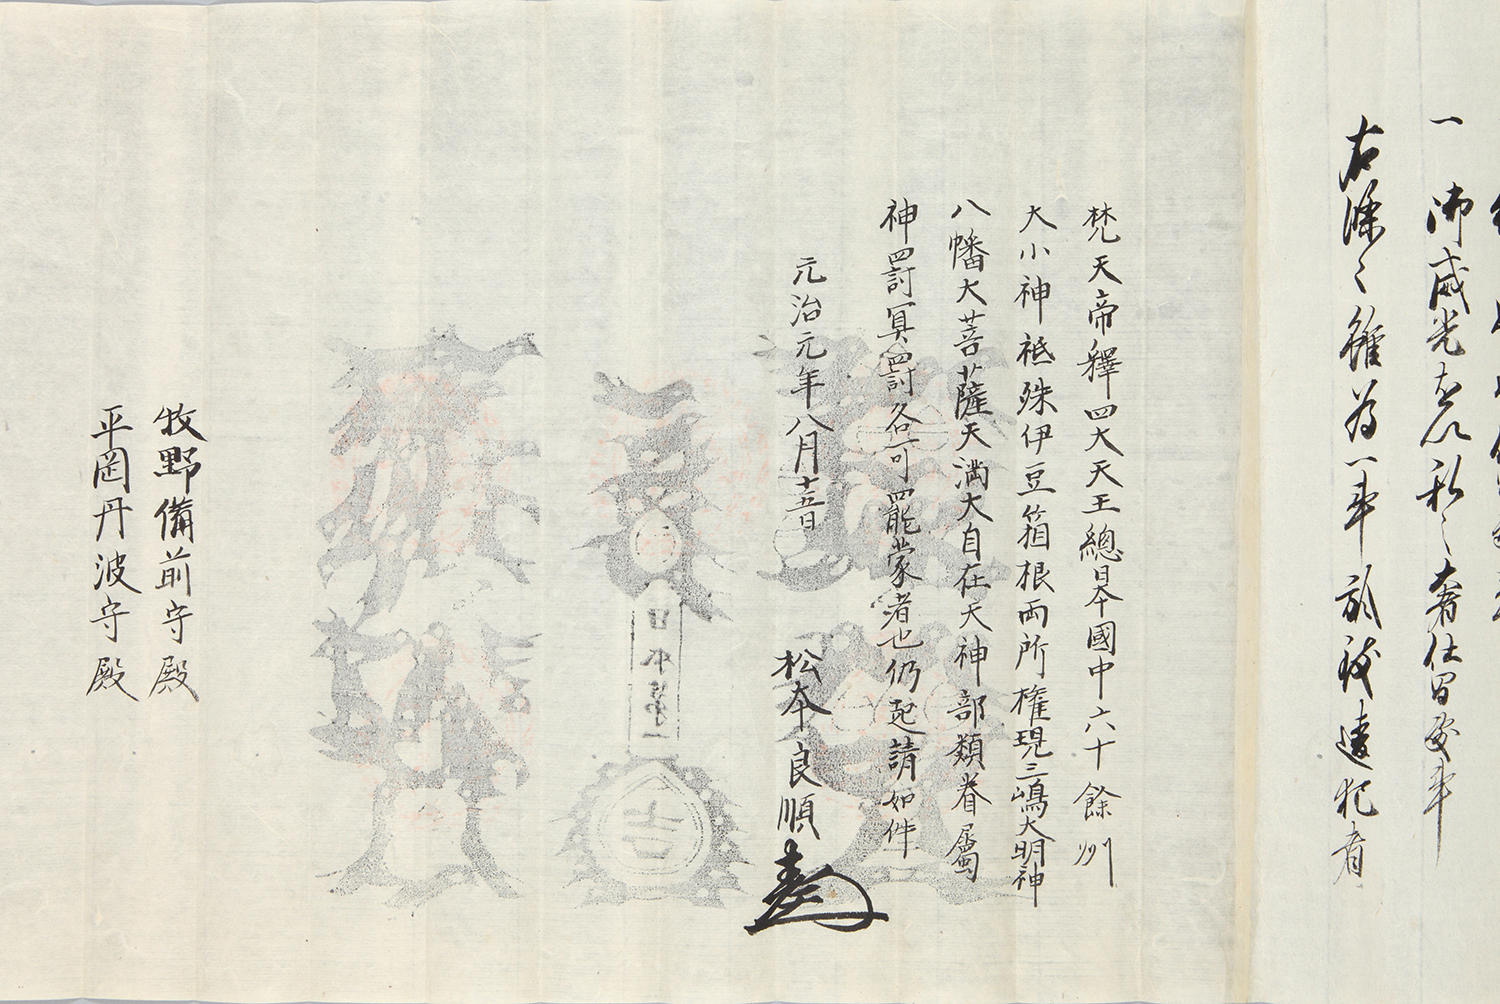 一 御威光を以私之奢仕間敷事
右條々雖為一事於致違犯者
梵天帝釋四大天王總日本國中六十餘州
大小神祇殊伊豆箱根両所権現三嶋大明神
八幡大菩薩天満大自在天神部類眷屬
神罰冥罰各可罷蒙者也仍起請如件
元治元年八月十五日
松本良順
牧野備前守殿
平岡丹波守殿
日本第一